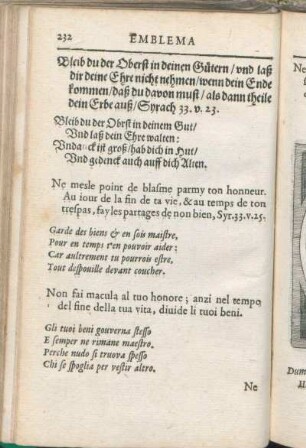 232 EMBLEMA
Bleib du der Oberst in deinen Gütern / vnd laß
dir deine Ehre nicht nehmen / wenn dein Ende
kommen / daß du davon must / als dann theile
dein Erbe auß / Syrach 33. v. 23.
Bleib du der Obrst in deinem Gut /
Vnd laß dein Ehre walten:
ist groß / hab dich in Hut /
Vnd gedenck auch auff dich Alten.
Ne mesle point de blasme parmy ton honneur.
Au iour de la fin de ta vie, & au temps de ton
trespas, fay les partages de non bien, Syr. 33. v. 25.
Garde des biens & en sois maistre,
Pour en temps t'en pouvoir aider:
Car aultrement tu pourrois estre,
Tout despouille devant coucher.
Non fai macula al tuo honore; anzi nel tempo
del fine della tua vita, diuide li tuoi beni.
Gli tuoi beni gouverna stesso
E semper ne rimane maestro.
Perche nudo si truova spesso
Chi se spoglia per vestir altro.
Ne
Ne
Dum